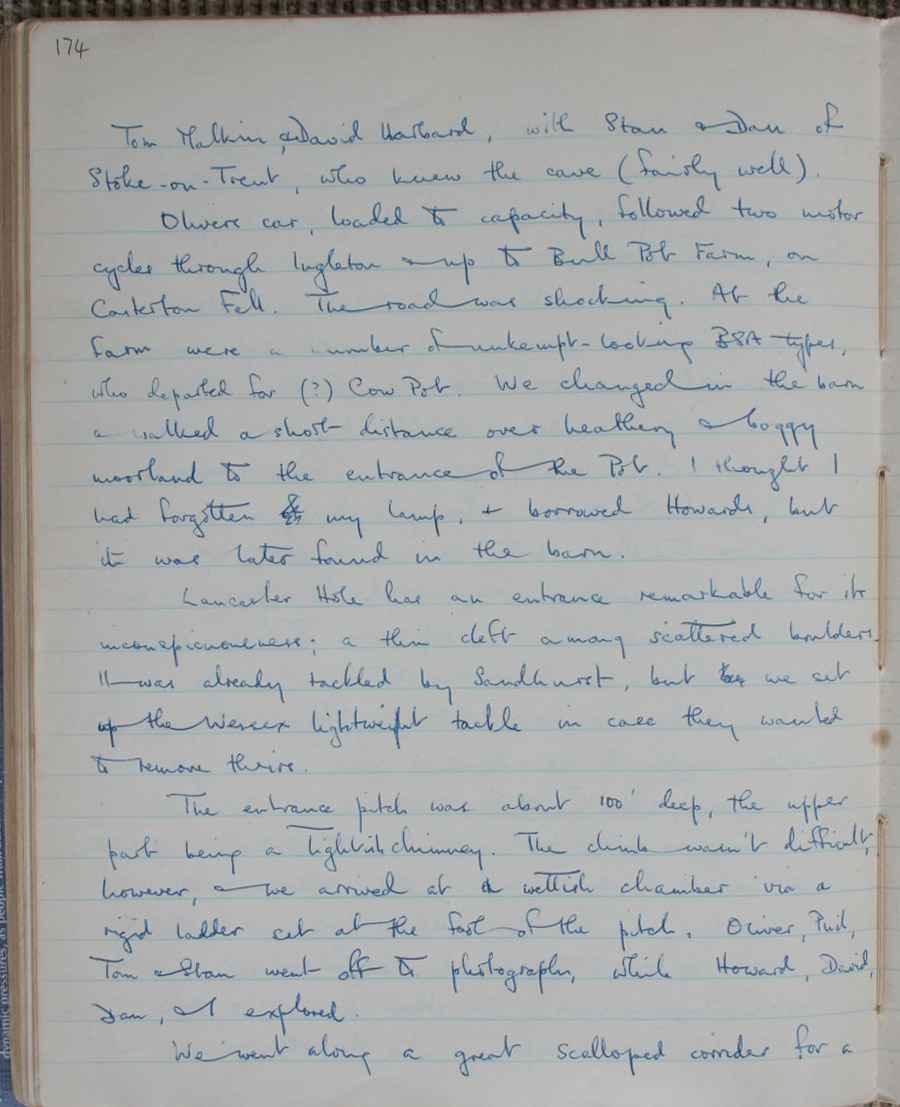 174
Tom Malkin, & David Harband, with Stan & Dan of
Stoke-on-Trent, who knew the cave (fairly well).
Olivers car, loaded to capacity, followed two motor
cycles through Ingleton & up to Bull Pot Farm, on
Casterton Fell. The road was shocking. At the
farm were a number of unkempt-looking types,
who departed for (?) Cow Pot. We changed in the barn
& walked a short distance over heathery & boggy
moorland to the entrance of the Pot. I thought I
had forgotten my lamp, & borrowed Howards, but
it was later found in the barn.
Lancaster Hole has an entrance remarkable for its
inconspicuousness; a thin cleft among scattered boulders.
It was already tackled by Sandhurst, but we set
up the Wessex lightweight tackle in case they wanted
to remove theirs.
The entrance pitch was about 100' deep, the upper
part being a tightish chimney. The climb wasn't difficult,
however, & we arrived at a wettish chamber via a
rigid ladder set at the foot of the pitch. Oliver, Phil,
Tom & Stan went off to photograph, while Howard, David,
Dan, & I explored.
We went along a great scalloped corridor for a